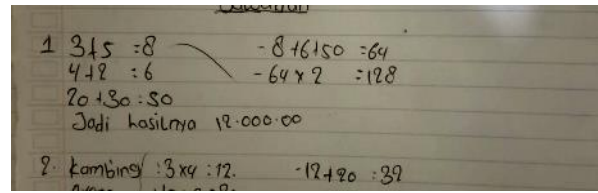 Jawaban
1 3+5 :8 - 8+6+50 :64
4+2 :6 - 64 x 2 :128
20+30:50
Jadi hasilnya 12.000.00
2. kambing :3x4 :12. -12+20 :32